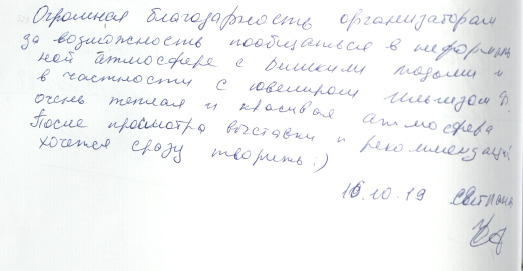 Огромная благодарность организаторам
за возможность пообщаться в неформаль
ной атмосфере с великими людьми и
в частности с ювелиром Ильгизом Ф.
очень теплая и красивая атмосфера
После просмотра выставки и рекомендаций
хочется сразу творить :)
16.10.19 Светлана